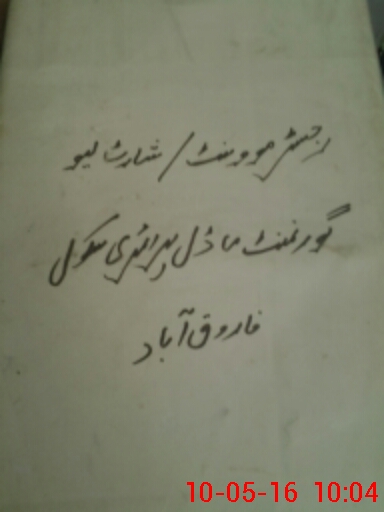 رجسٹر موومنٹ / شارٹ لیو
گورنمنٹ ماڈل پرائمری سکول
فاروق آباد
10-05-16 10:04